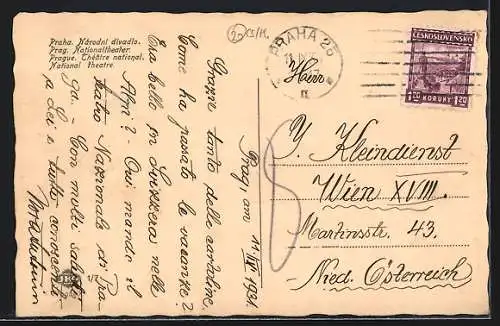 Praha. Národní divadlo.
Prag. Nationaltheater.
Prague. Théâtre national.
National Theatre.
20
PRAHA 25
ČESKOSLOVENSKO
1.20 KORUNY 1.20
Prag, am
1931
Grazie tante delle cartoline.
Come ha passato le vacanze?
Era bello in Svizzera nelle
Alpi? - Qui mando il
teatro Nazionale di Pra-
ga. - Con molti saluti
a Lei e tutti conoscenti
Herr
J. Kleindienst
Wien XVIII.
Martinsstr. 43.
Nied. Österreich